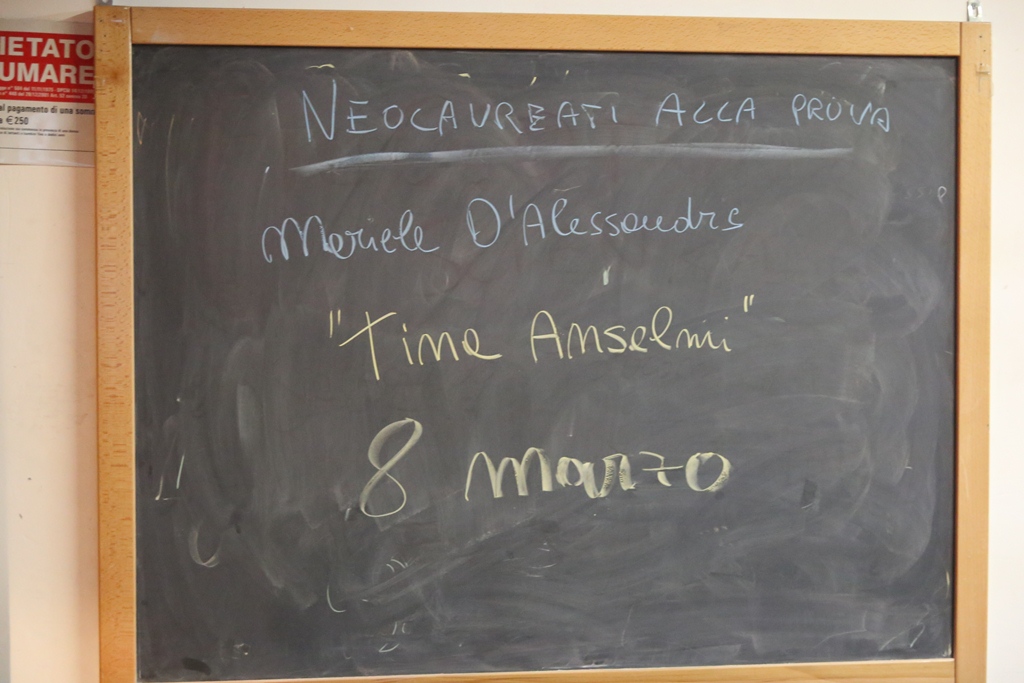 IETATO
UMARE
al pagamento di una som
a €250
NEOLAUREATI ALLA PROVA
Mariele D'Alessandris
"Tina Anselmi"
8 marzo